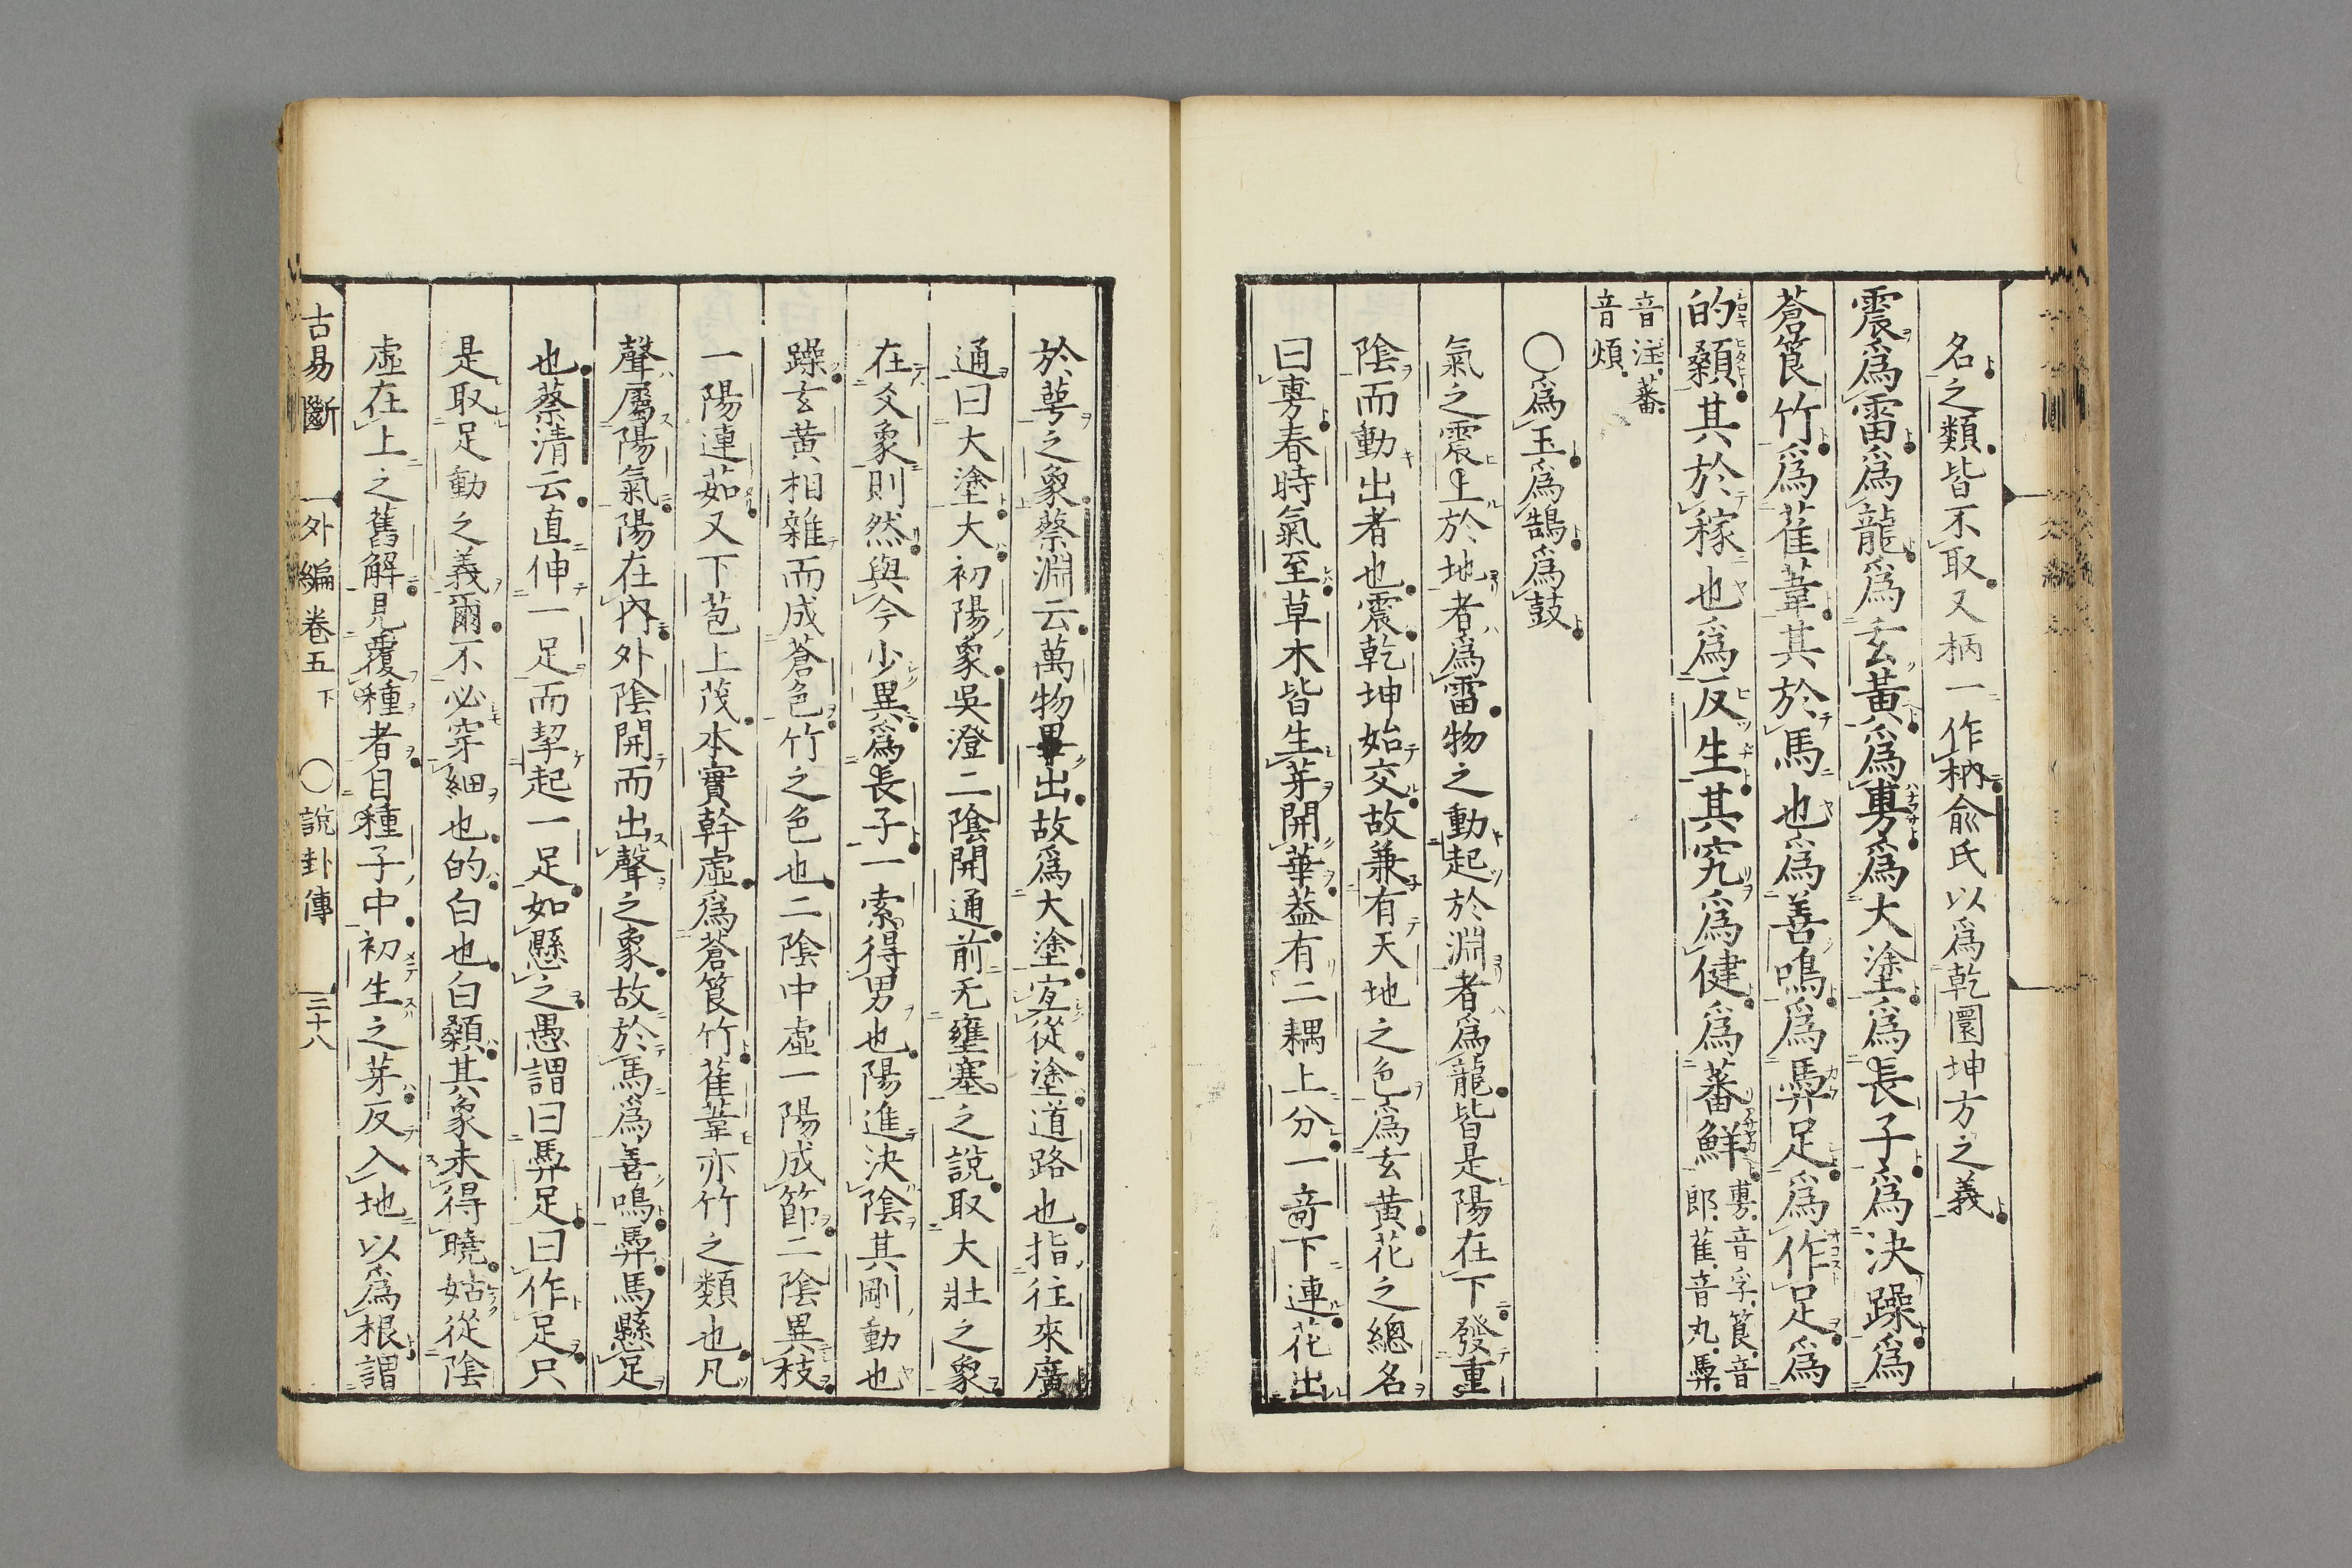 名之類皆不取又柄一作枘俞氏以爲乾圜坤方之義
震爲雷爲龍爲玄黃爲旉爲大塗爲長子爲決躁爲
蒼筤竹爲萑葦其於馬也爲善鳴爲馵足爲作足爲
的顙其於稼也爲反生其究爲健爲蕃鮮旉音孚筤音
郎萑音丸馵
音注蕃
音煩
〇爲玉爲鵠爲鼓
氣之震上於地者爲雷物之動起於淵者爲龍皆是陽在下發重
陰而動出者也震乾坤始交故兼有天地之色爲玄黃花之總名
曰旉春時氣至草木皆生芽開華蓋有二耦上分一竒下連花出
於萼之象蔡淵云萬物畢出故爲大塗宐從塗道路也指往來廣
通曰大塗大初陽象吳澄二陰開通前无壅塞之說取大壯之象
在爻象則然與今少異爲長子一索得男也陽進決陰其剛動也
躁玄黄相雜而成蒼色竹之色也二陰中虛一陽成節二陰異枝
一陽連茹又下苞上茂本實幹虛爲蒼筤竹萑葦亦竹之類也凡
聲屬陽氣陽在內外陰開而出聲之象故於馬爲善鳴馵馬懸足
也蔡清云直伸一足而挈起一足如懸之愚謂曰馵足曰作足只
是取足動之義爾不必穿細也的白也白顙其象未得曉姑從陰
虛在上之舊解見覆種者自種子中初生之芽反入地以爲根謂
古易斷 外編卷五下 〇說卦傳 三十八